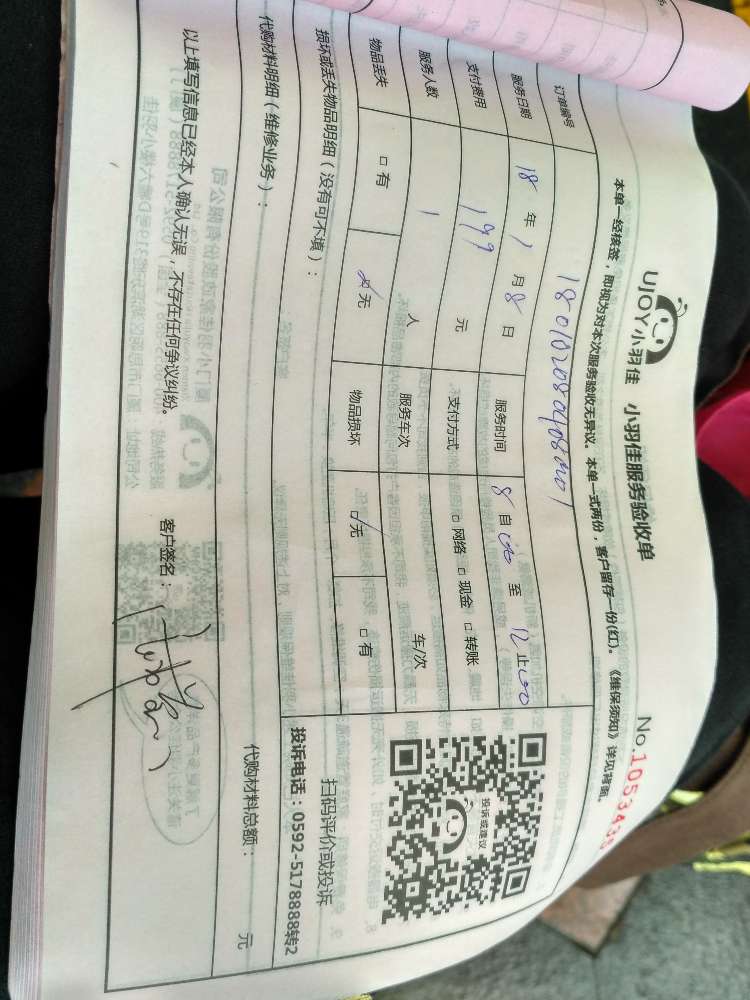 UJOY小羽佳 小羽佳服务验收单
No.1053438
本单一经核签，即视为对本次服务验收无异议。本单一式两份，客户留存一份(红)。《维保须知》详见背面。
订单编号
服务日期 18 年 1 月 8 日 服务时间 8 自 至 12 止
支付费用 199 元 支付方式 □ 网络 □ 现金 □ 转账
服务人数 1 人 服务车次 车/次
物品丢失 □ 有 ☑ 无 物品损坏 ☑ 无 □ 有
投诉或建议
扫码评价或投诉
投诉电话：0592-5178888转2
损坏或丢失物品明细（没有可不填）：
代购材料明细（维修业务）：
代购材料总额： 元
以上填写信息已经本人确认无误，不存在任何争议纠纷。 客户签名：